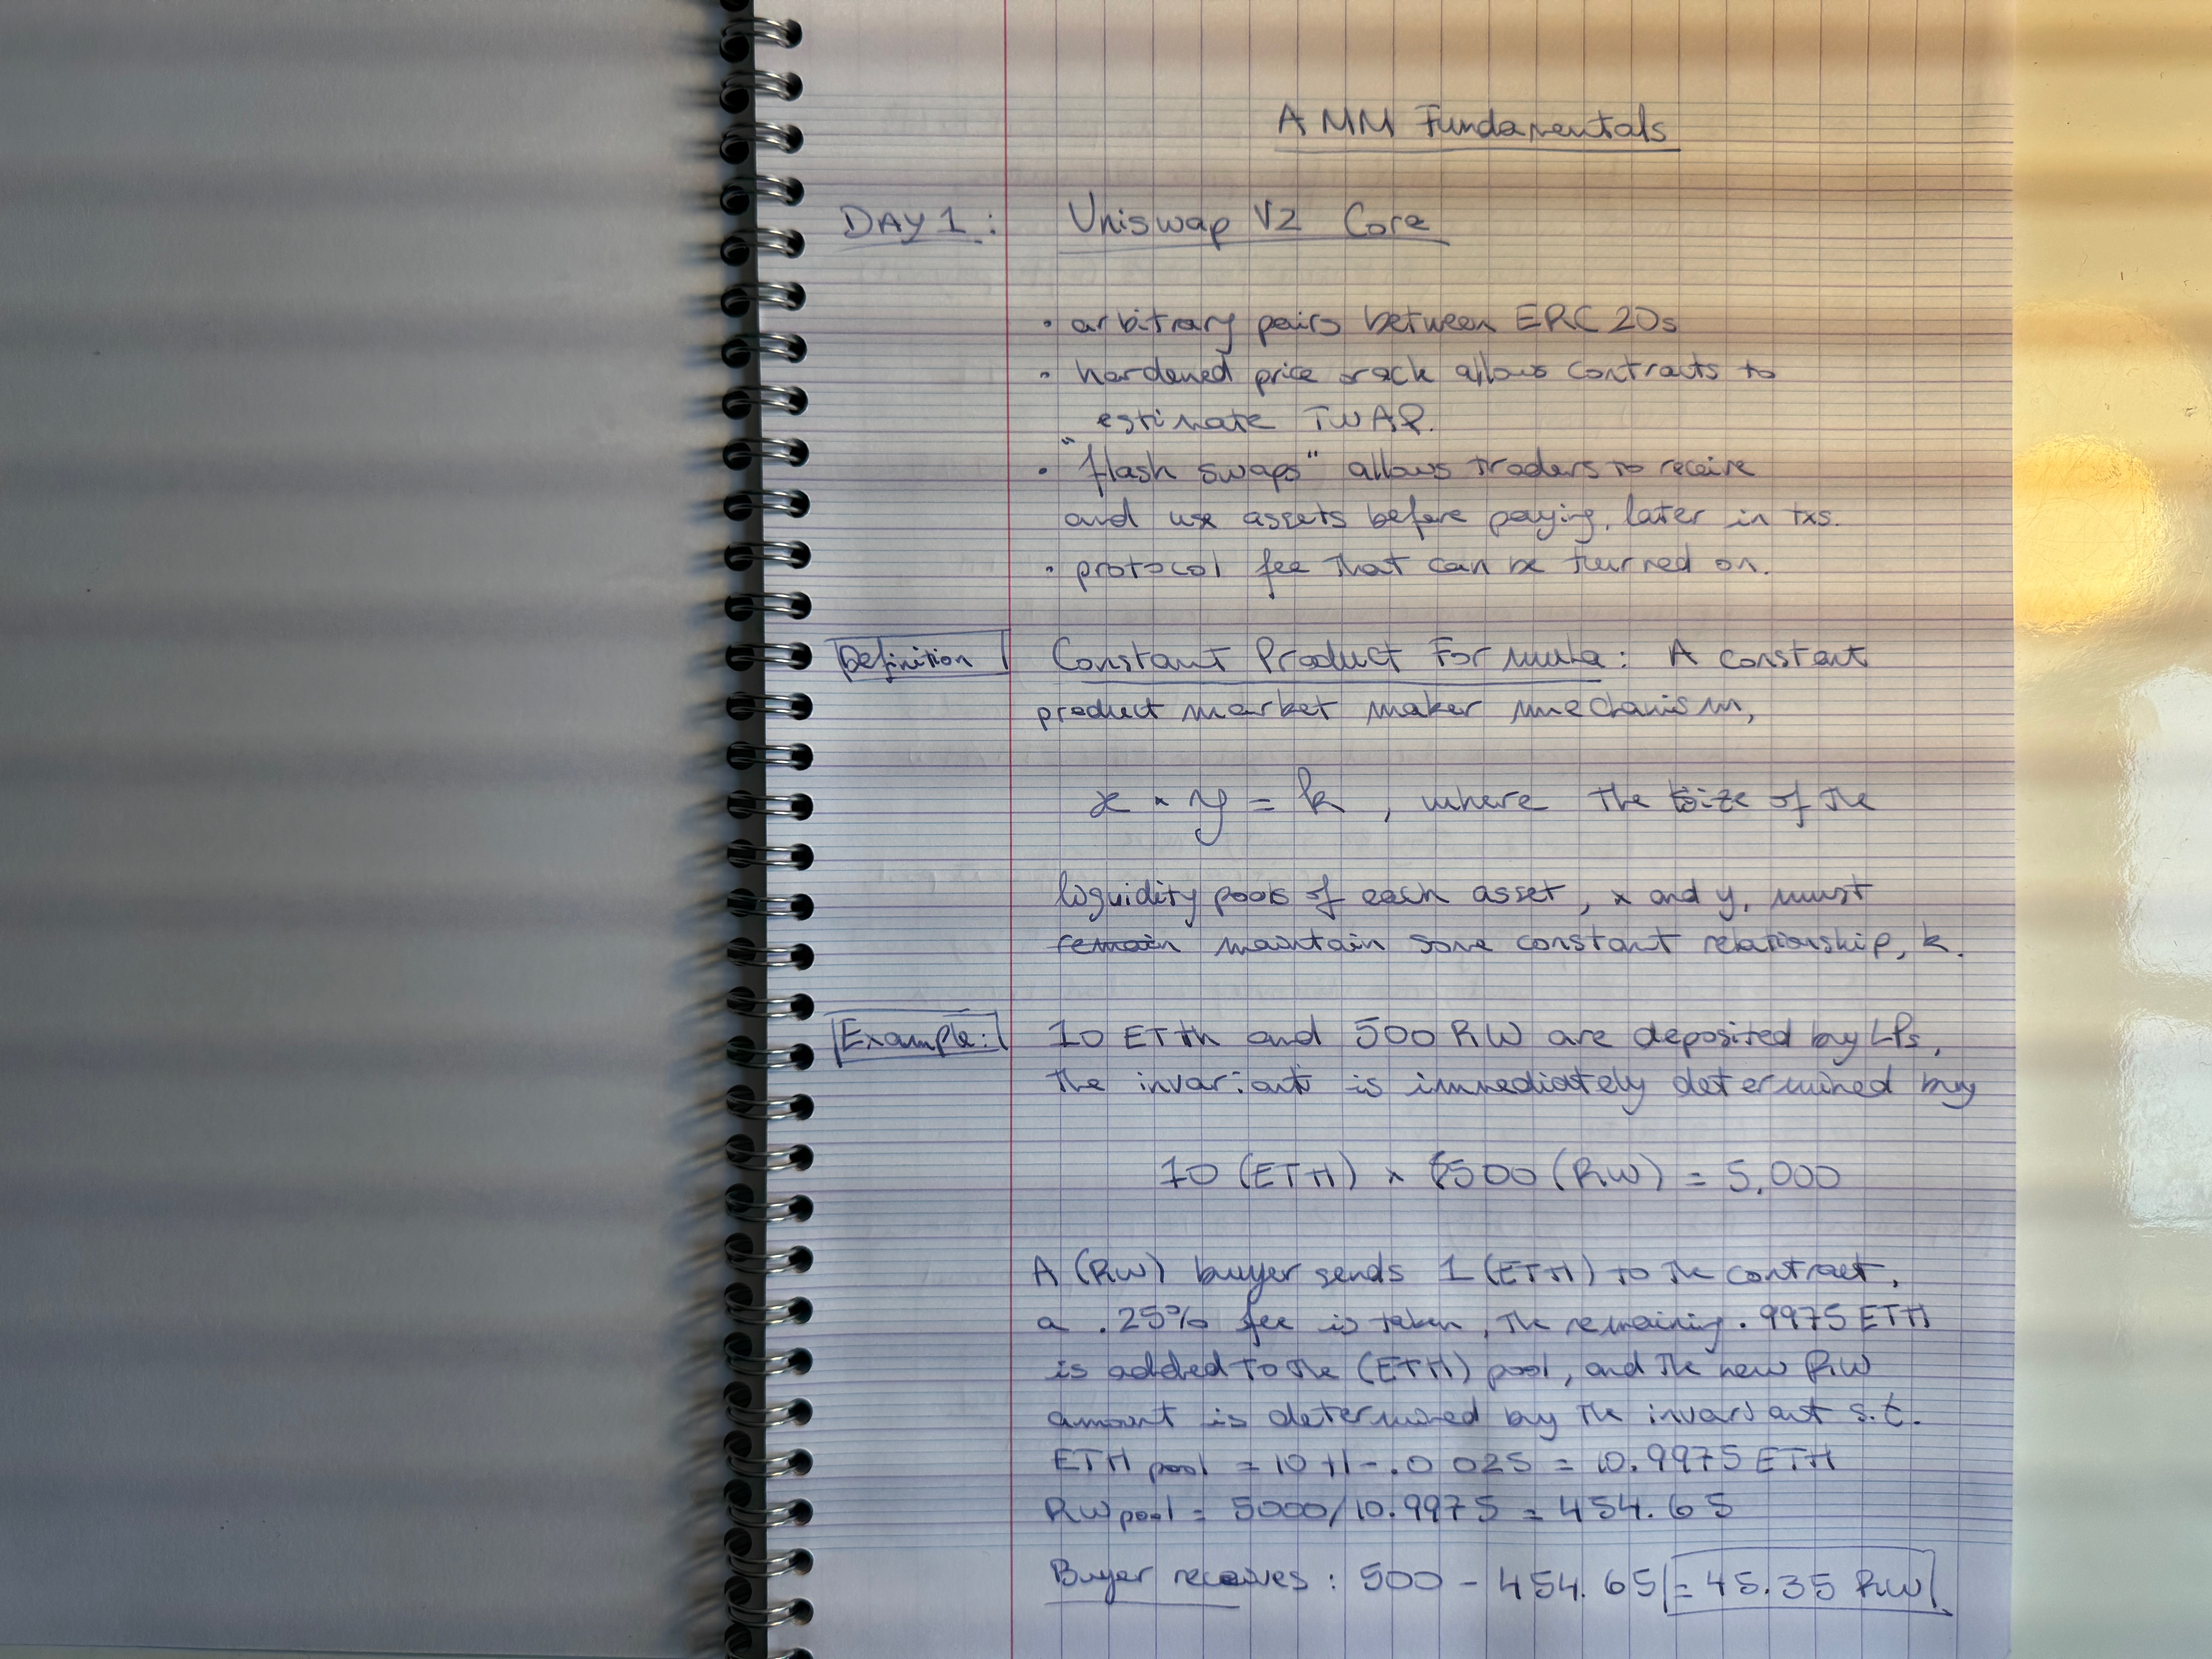 AMM Fundamentals
DAY 1: Uniswap V2 Core
• arbitrary pairs between ERC 20s
• hardened price oracle allows contracts to
estimate TWAP.
• "flash swaps" allows traders to receive
and use assets before paying, later in txs.
• protocol fee that can be turned on.
Definition Constant Product Formula: A constant
product market maker mechanism,
x * y = k, where the size of the
liquidity pools of each asset, x and y, must
remain maintain some constant relationship, k.
Example: 10 ETH and 500 RW are deposited by LPs,
the invariant is immediately determined buy
10 (ETH) x 500 (RW) = 5,000
A (RW) buyer sends 1 (ETH) to the contract,
a .25% fee is taken, the remaining .9975 ETH
is added to the (ETH) pool, and the new RW
amount is determined by the invariant s.t.
ETH pool = 10 + 1 - .0025 = 10.9975 ETH
RW pool = 5000/10.9975 = 454.65
Buyer receives: 500 - 454.65 = 45.35 RW